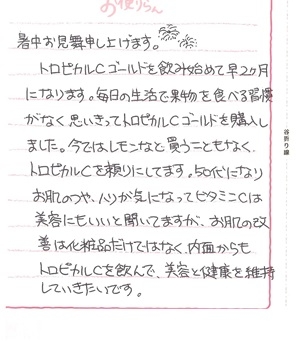 お便りらん
暑中お見舞申し上げます。
トロピカルCゴールドを飲み始めて早2ヶ月
になります。毎日の生活で果物を食べる習慣
がなく思いきってトロピカルCゴールドを購入し
ました。今ではレモンなど買うこともなく、
トロピカルCを頼りにしてます。50代になり
お肌のつや、ハリが気になってビタミンCは
美容にもいいと聞いてますが、お肌の改
善は化粧品だけではなく、内面からも
トロピカルCを飲んで、美容と健康を維持
していきたいです。
谷折り線